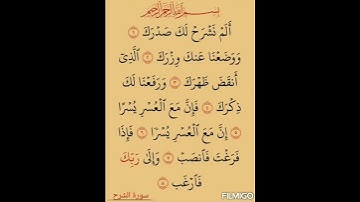 بِسْمِ ٱللَّهِ ٱلرَّحْمَٰنِ ٱلرَّحِيمِ
أَلَمْ نَشْرَحْ لَكَ صَدْرَكَ ١
وَوَضَعْنَا عَنكَ وِزْرَكَ ٢ ٱلَّذِىٓ
أَنقَضَ ظَهْرَكَ ٣ وَرَفَعْنَا لَكَ
ذِكْرَكَ ٤ فَإِنَّ مَعَ ٱلْعُسْرِ يُسْرًا
٥ إِنَّ مَعَ ٱلْعُسْرِ يُسْرًا ٦ فَإِذَا
فَرَغْتَ فَٱنصَبْ ٧ وَإِلَىٰ رَبِّكَ
فَٱرْغَب ٨
سورة الشرح
FILMIGO